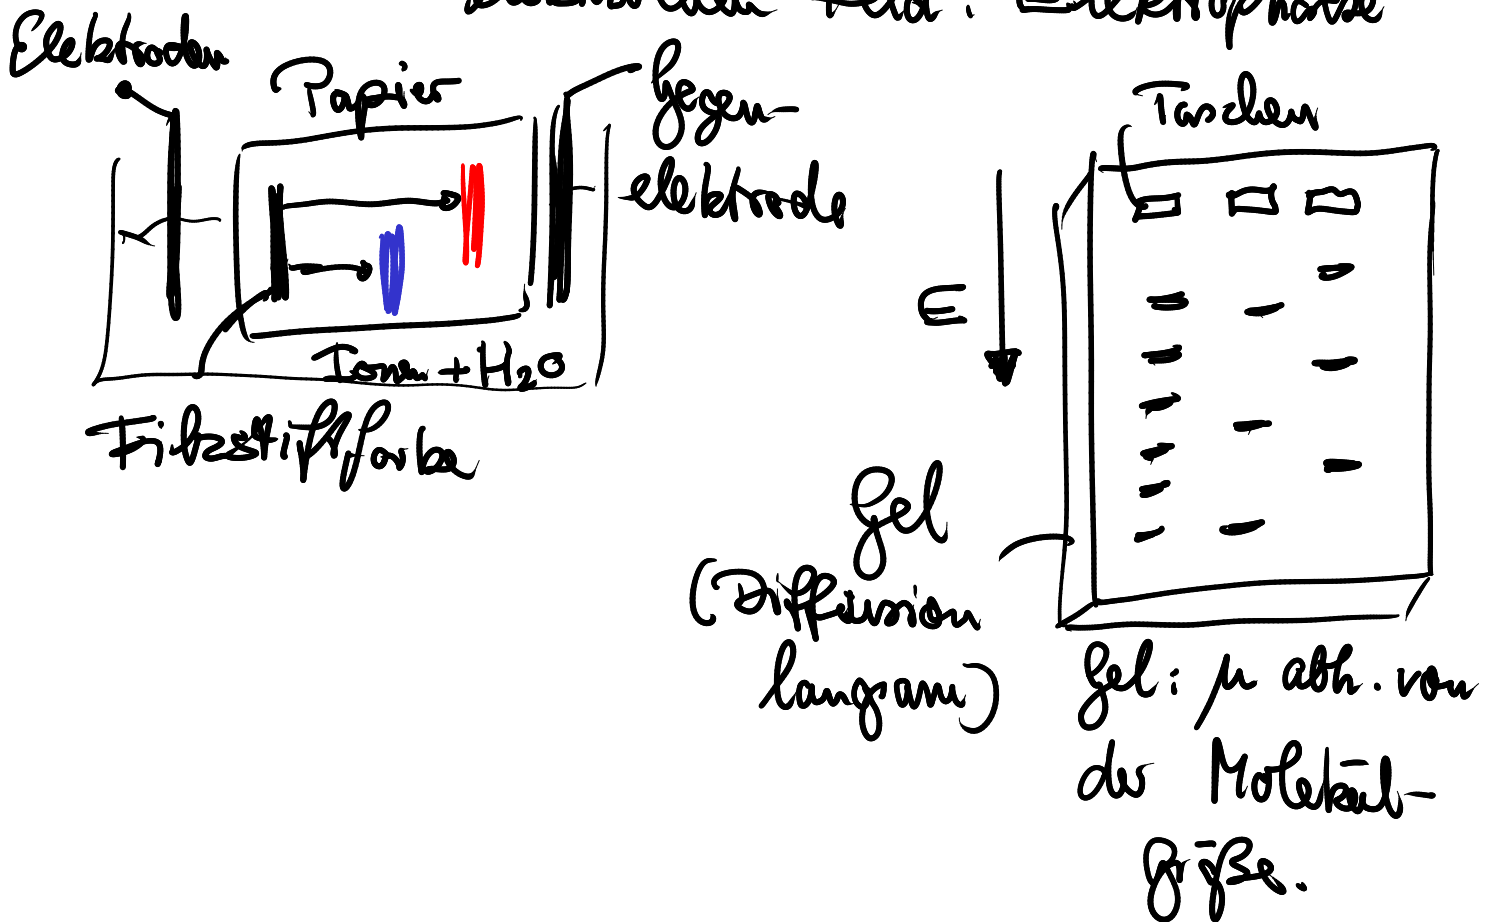 Feld: Elektrophorese
Elektroden
Papier
Gegen-
elektrode
Ionen + H₂O
Filzstiftfarbe
Taschen
E
Gel
(Diffusion
langsam)
Gel: μ abh. von
der Molekül-
größe.